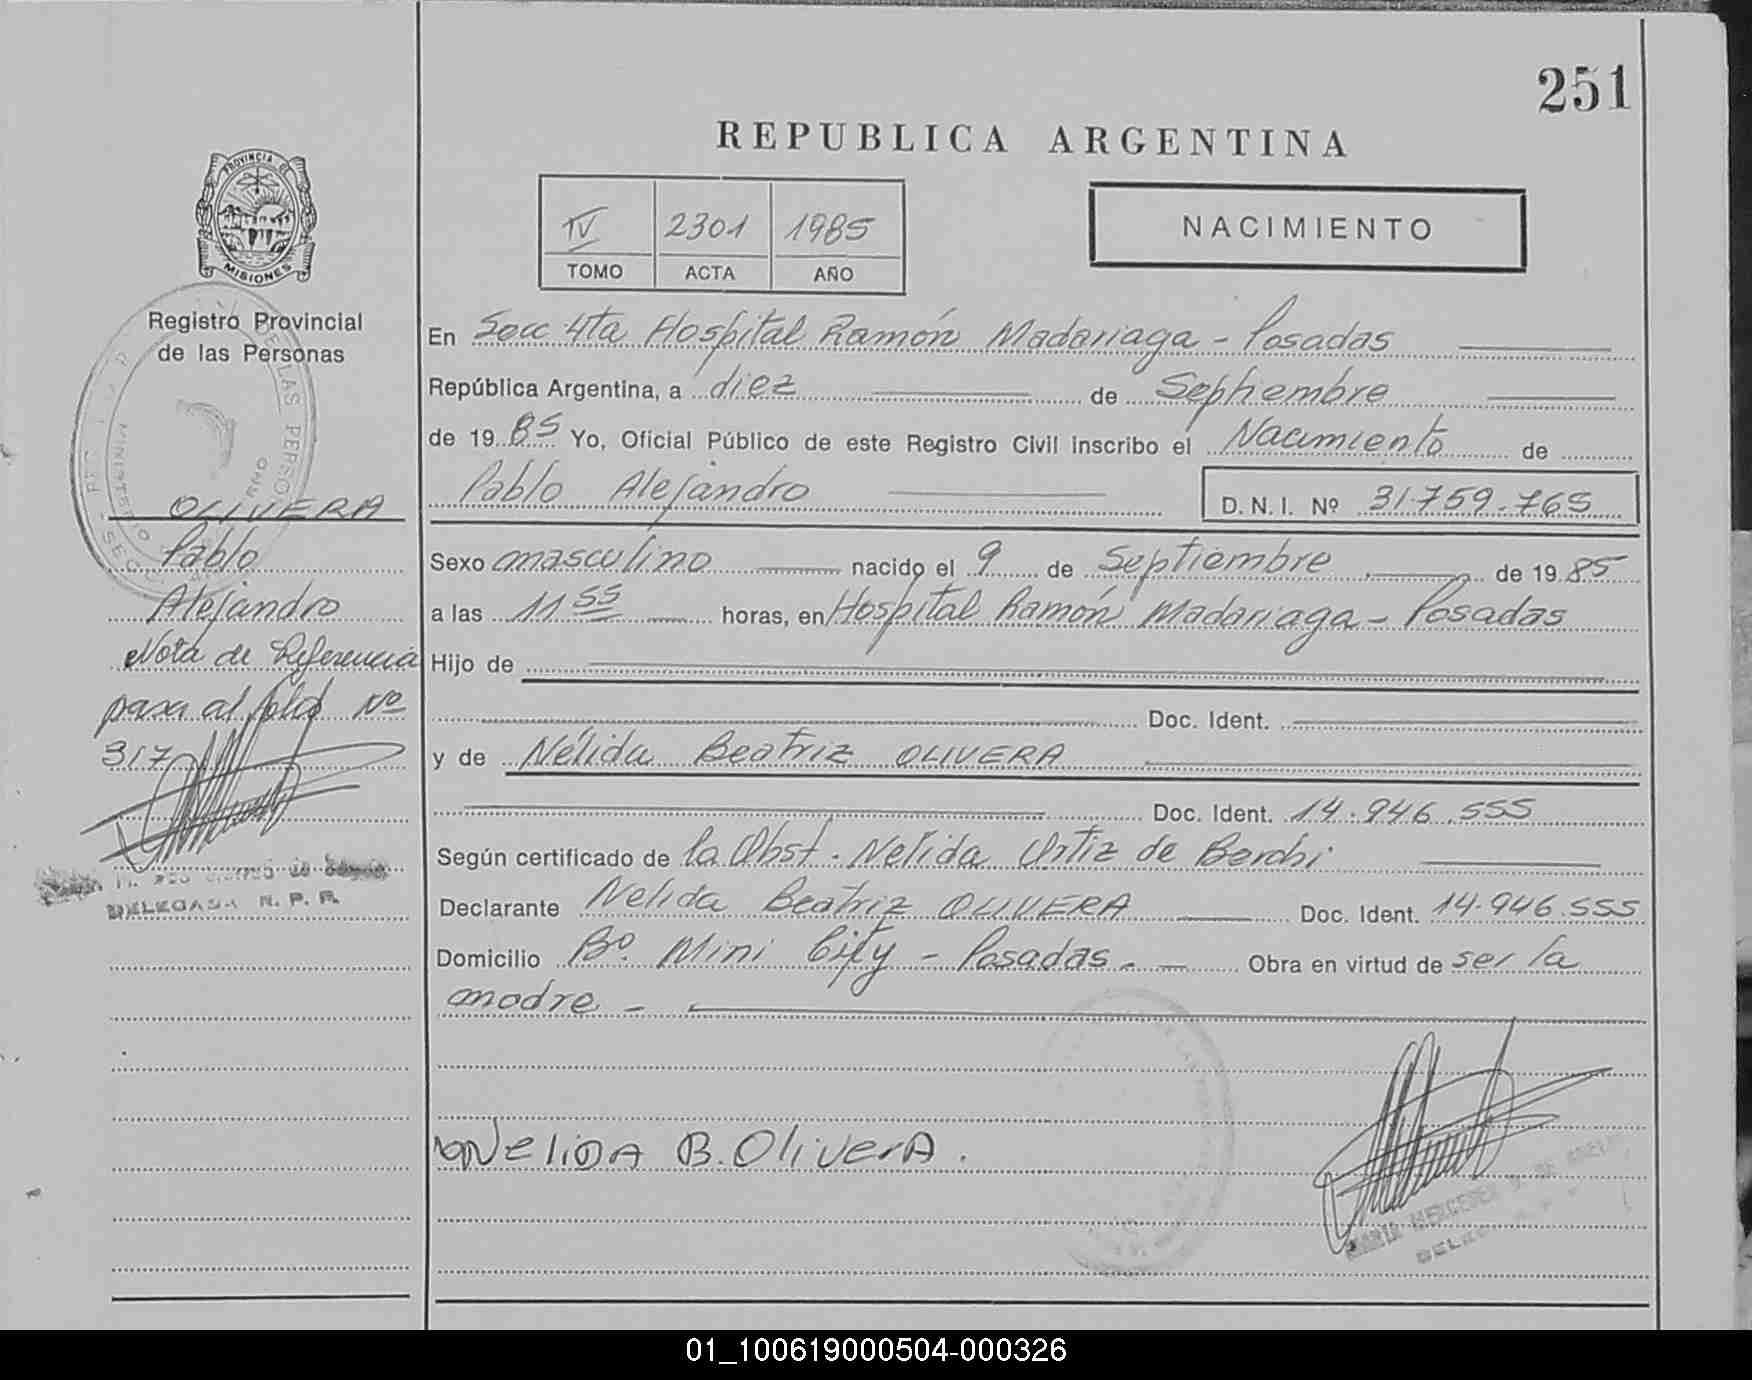 251
REPUBLICA ARGENTINA
PROVINCIA DE
MISIONES
IV 2301 1985
TOMO ACTA AÑO
NACIMIENTO
Registro Provincial
de las Personas
OLIVERA
Pablo
Alejandro
Nota de Referencia
pasa al folio Nº
317
DELEGADA R. P. P.
En Secc 4ta Hospital Ramón Madariaga - Posadas
República Argentina, a diez de Septiembre
de 1985 Yo, Oficial Público de este Registro Civil inscribo el Nacimiento de
Pablo Alejandro D. N. I. Nº 31.759.765
Sexo masculino nacido el 9 de Septiembre de 1985
a las 11 55 horas, en Hospital Ramón Madariaga - Posadas
Hijo de
Doc. Ident.
y de Nélida Beatriz OLIVERA
Doc. Ident. 14.946.555
Según certificado de la Obst. Nelida Ortiz de Berchi
Declarante Nelida Beatriz OLIVERA Doc. Ident. 14.946.555
Domicilio Bº. Mini City - Posadas. - Obra en virtud de ser la
madre -
NeliDA B. OliverA.
MARIA MERCEDES
01_100619000504-000326